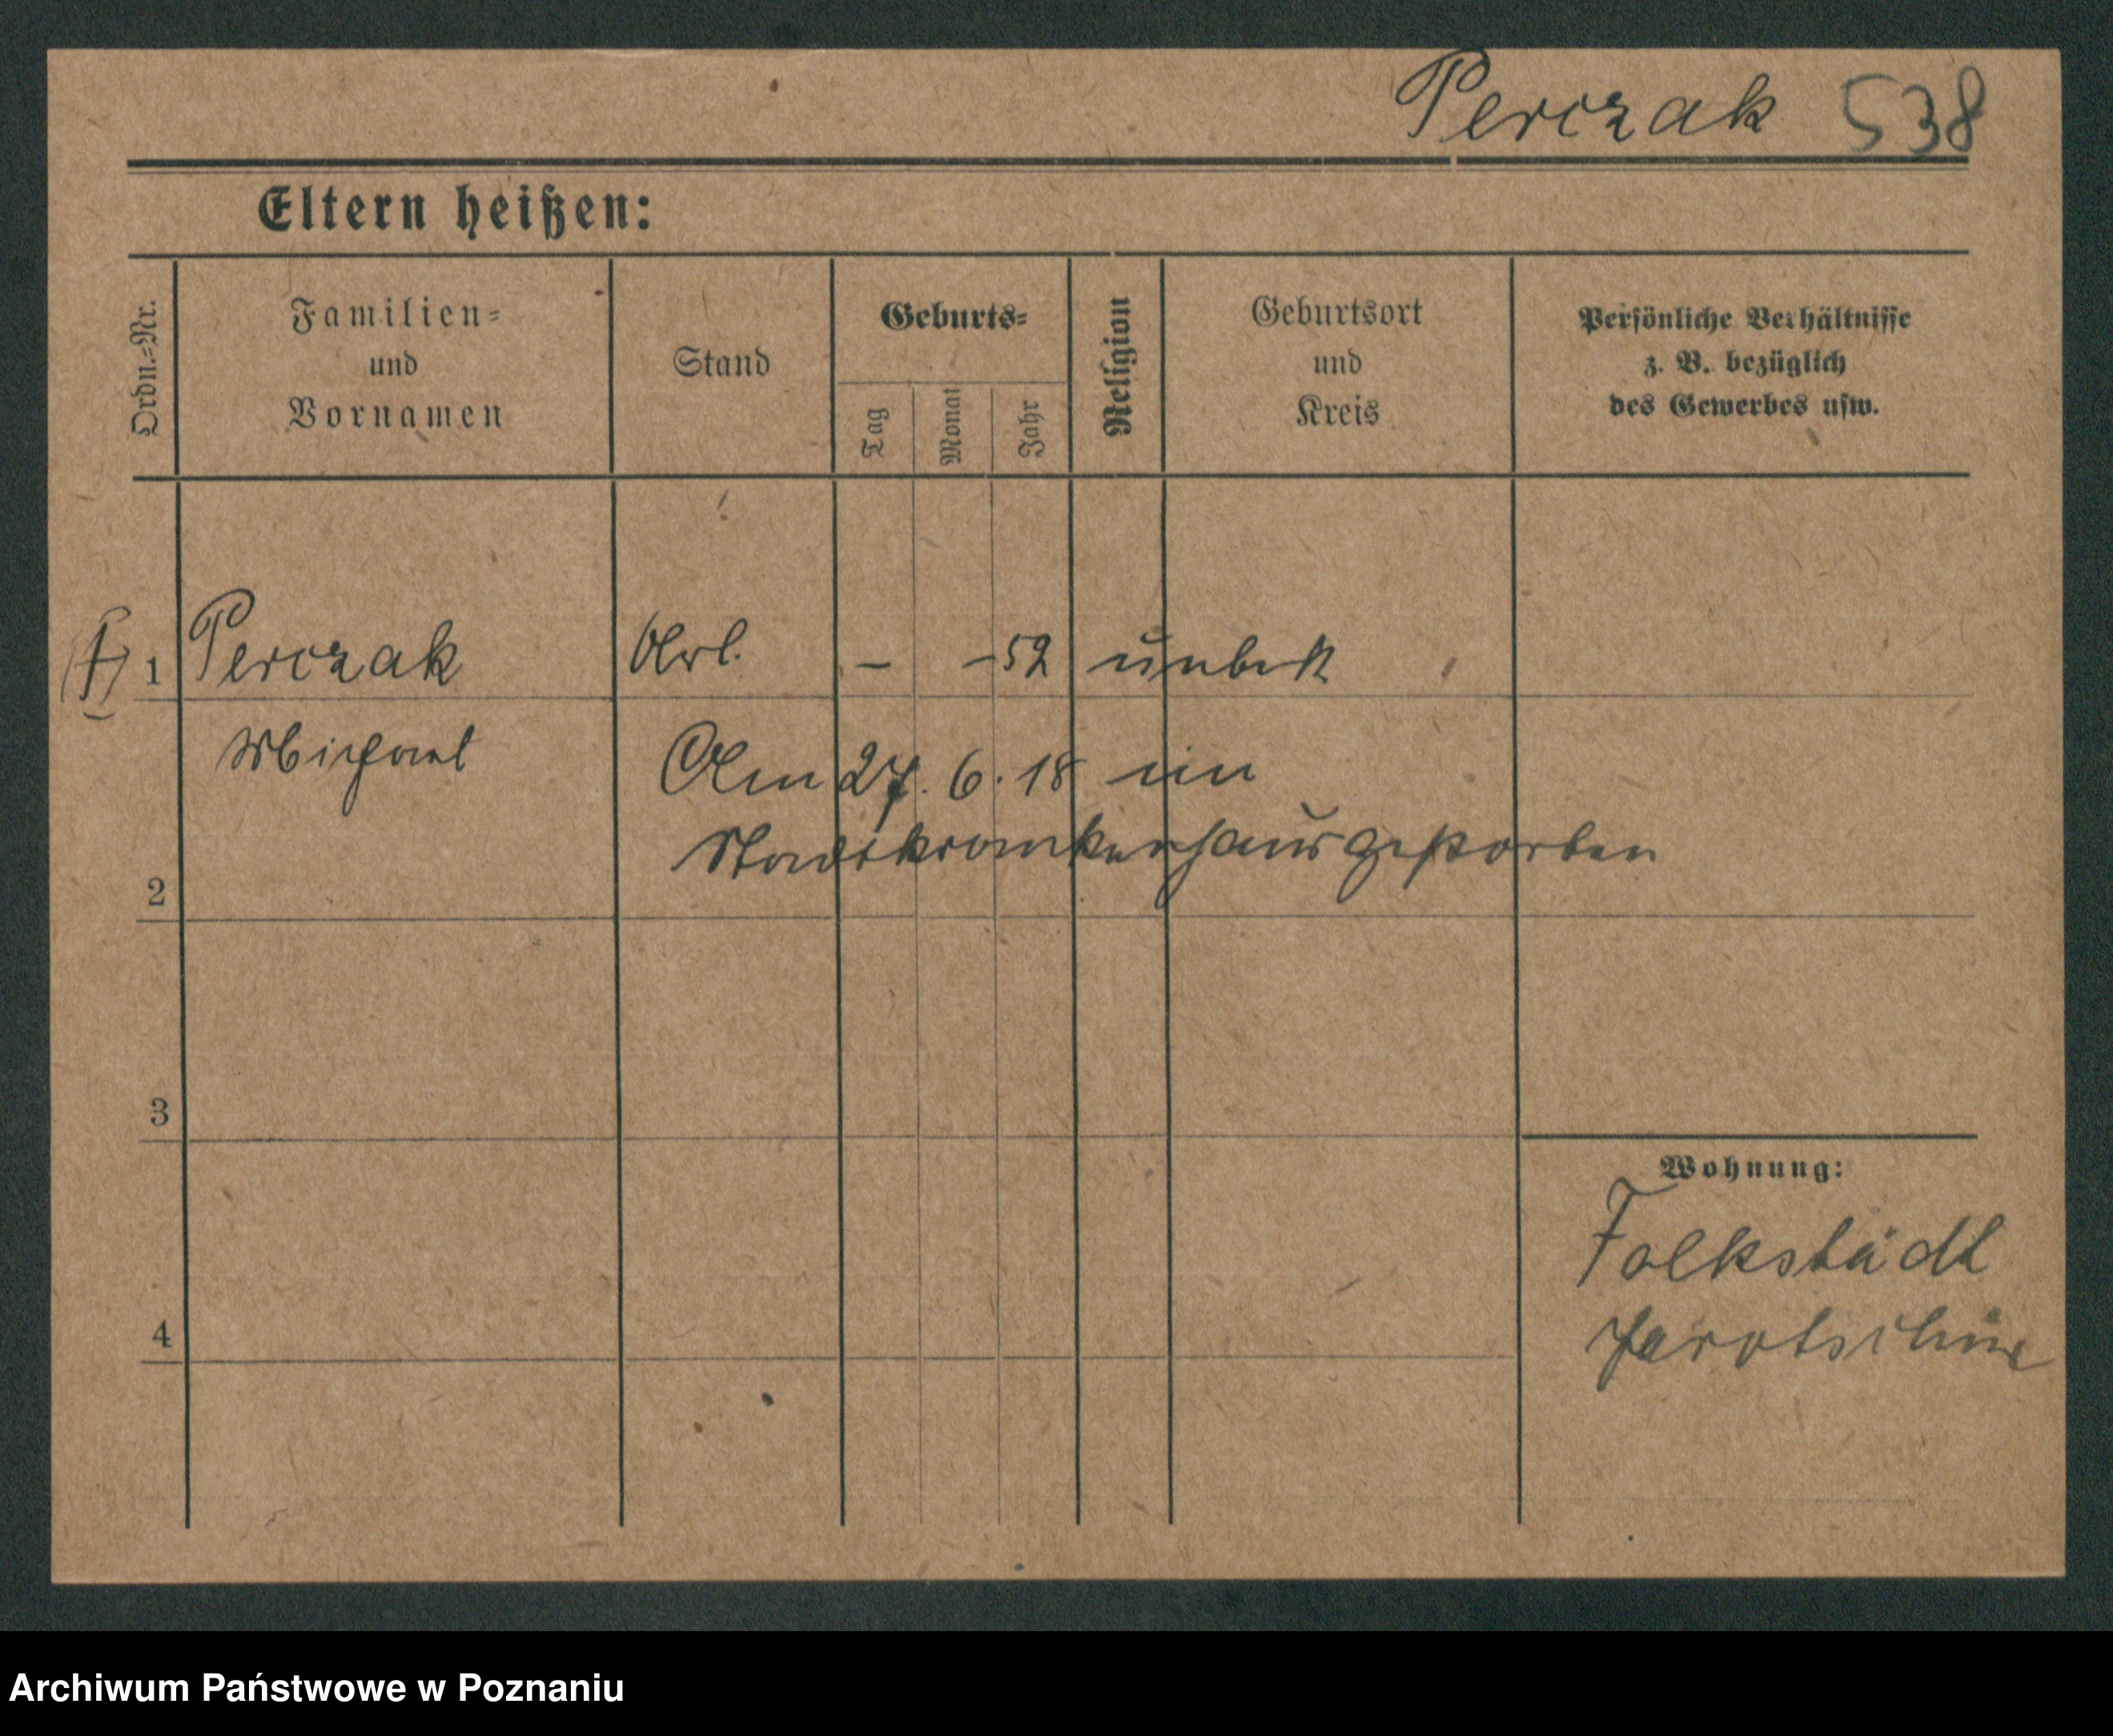 Perczak 538
Eltern heißen:
Ordn.-Nr.
Familien-
und
Vornamen
Stand
Geburts-
Tag
Monat
Jahr
Religion
Geburtsort
und
Kreis
Persönliche Verhältnisse
z. B. bezüglich
des Gewerbes usw.
1 Perczak Arb. — — 52 unbek
Michael
Am 27. 6. 18 im
Stadtkrankenhaus gestorben
2
3
4
Wohnung:
Falkstädt
Jarotschin
Archiwum Państwowe w Poznaniu